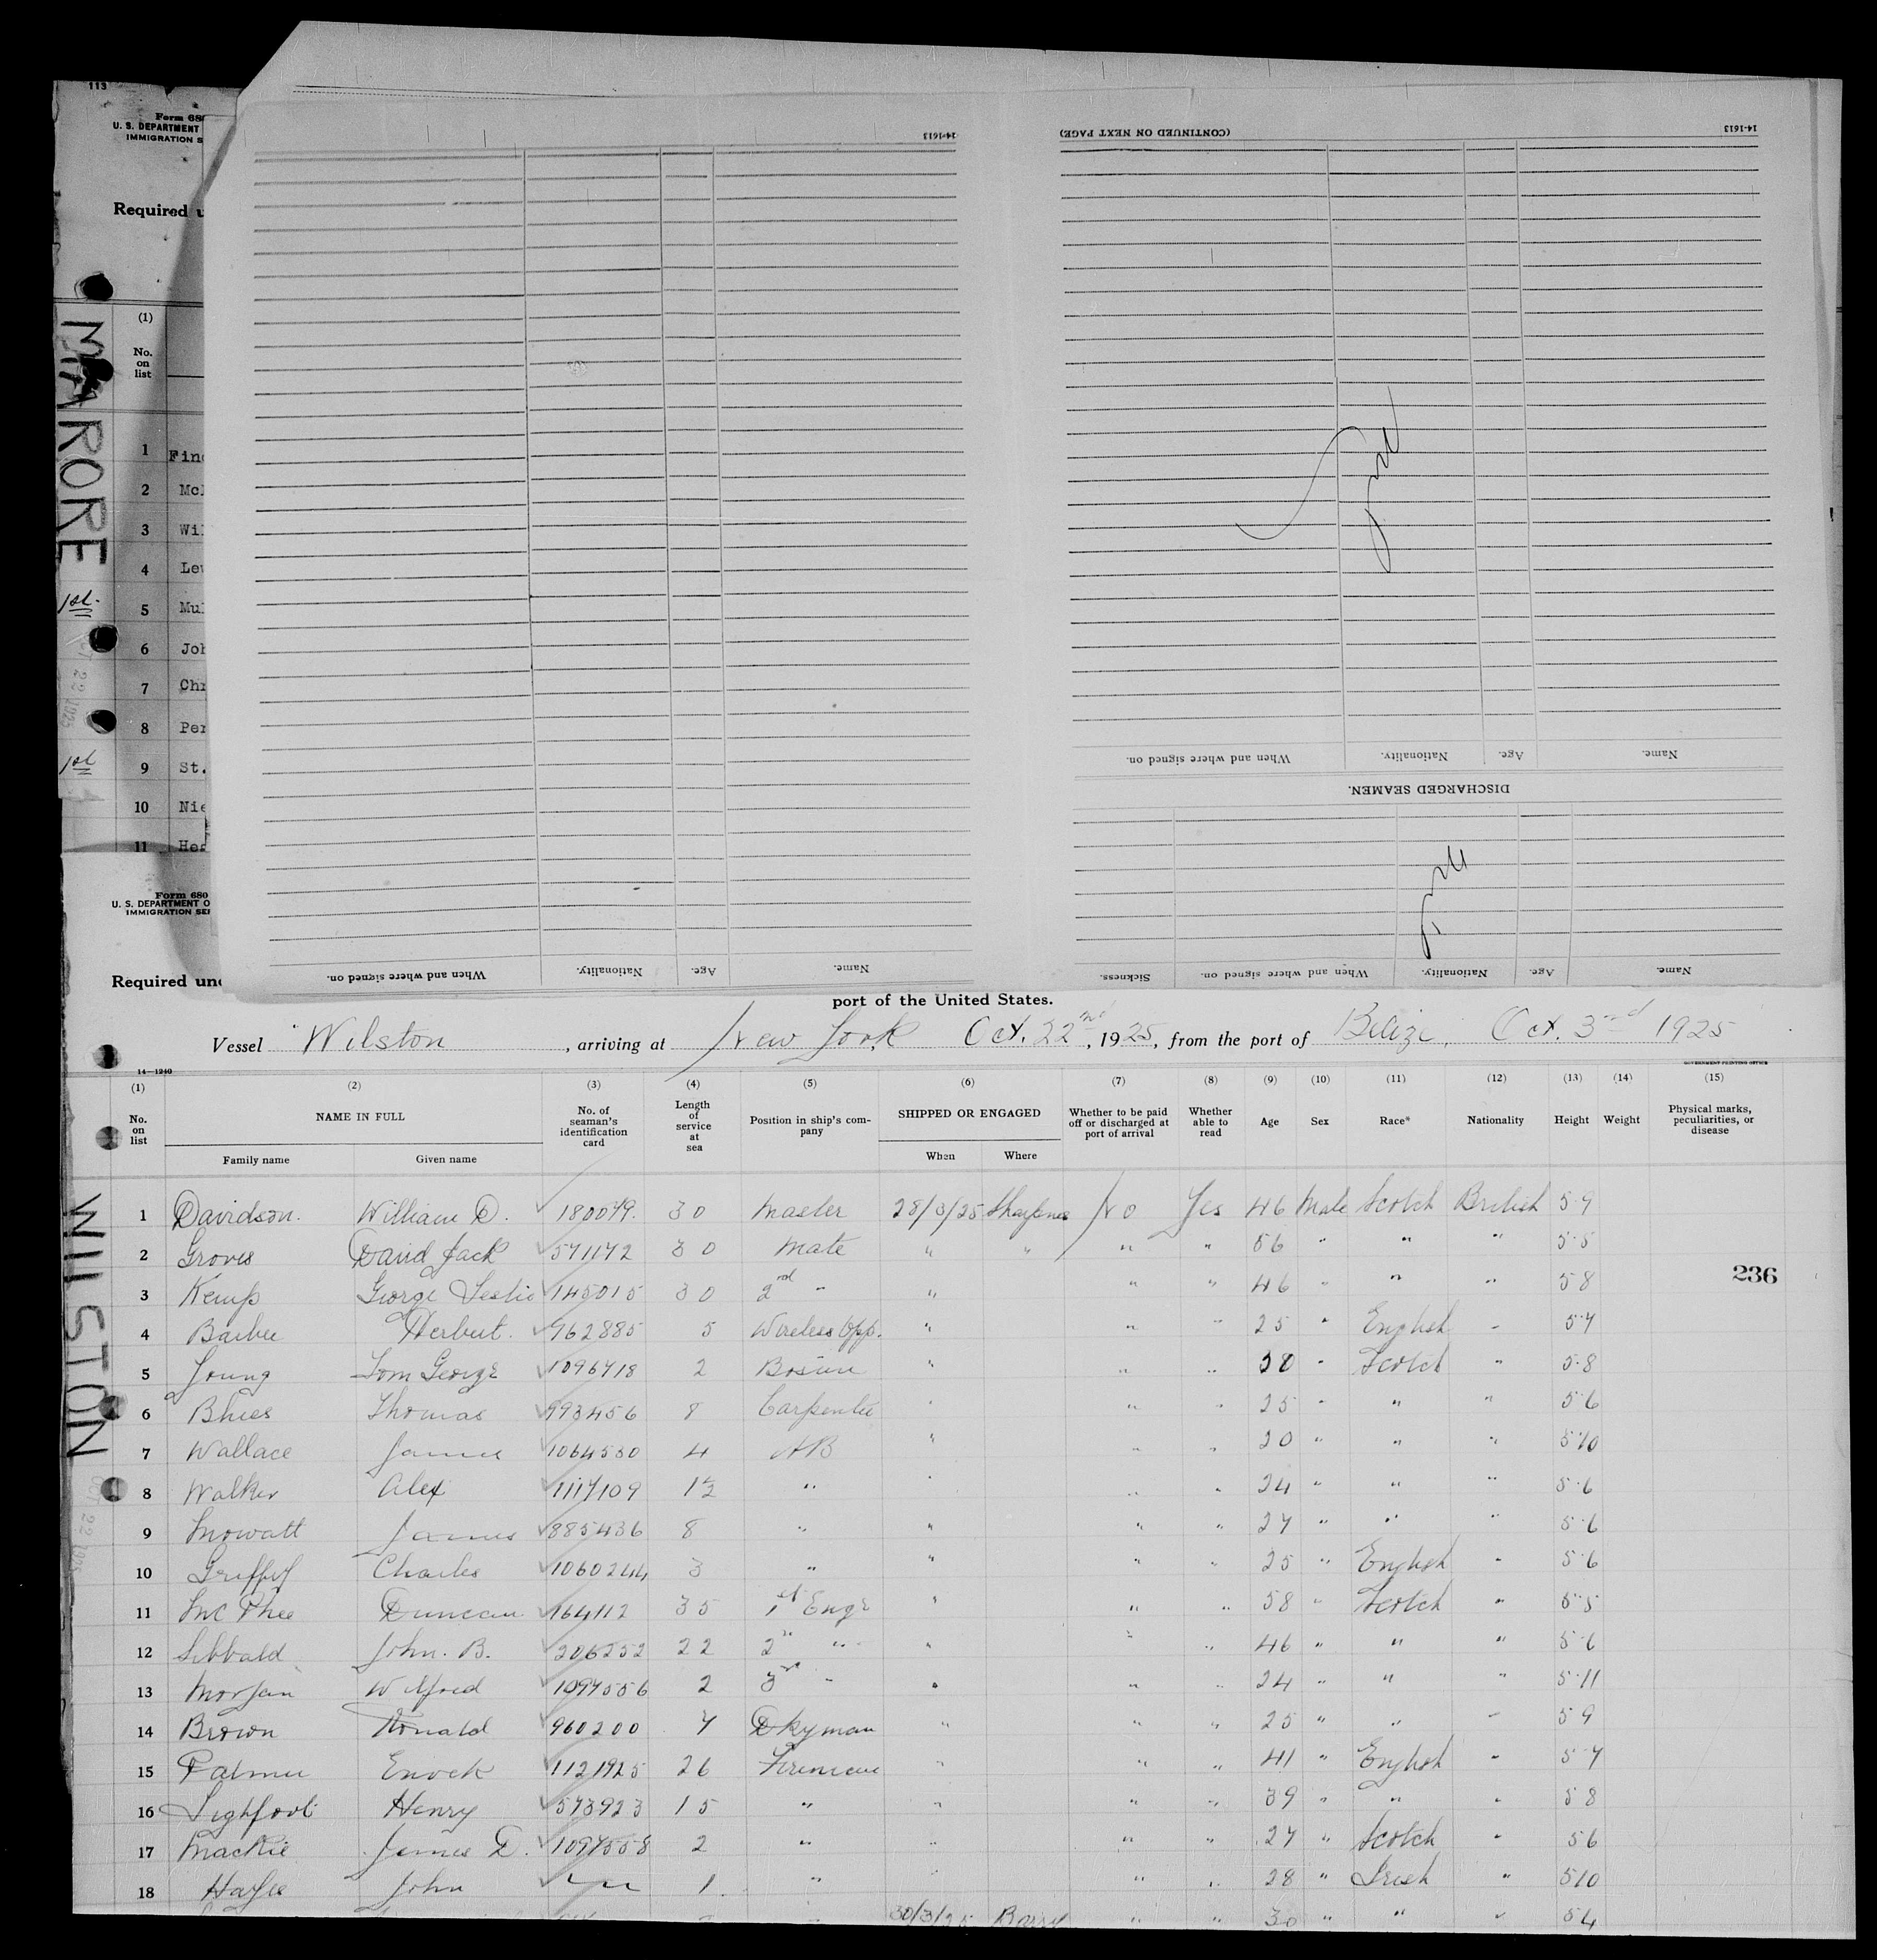 113
Form 68
U. S. DEPARTMENT
IMMIGRATION S
Required u
(1)
No. on list
1 Fin
2 Mc
3 Wi
4 Lew
5 Mul
6 Joh
7 Chr
8 Per
9 St.
10 Nie
11 Hes
MARORE
1st.
1st
14-1613
(CONTINUED ON NEXT PAGE)
14-1613
When and where signed on. Nationality. Age. Name.
DISCHARGED SEAMEN.
Sickness. When and where signed on. Nationality. Age. Name.
When and where signed on. Nationality. Age. Name.
Form 680
U. S. DEPARTMENT O
IMMIGRATION SER
Required und
port of the United States.
Vessel Wilston, arriving at New York Oct. 22nd, 1925, from the port of Belize, Oct. 3rd 1925
14—1240
GOVERNMENT PRINTING OFFICE
(1) (2) (3) (4) (5) (6) (7) (8) (9) (10) (11) (12) (13) (14) (15)
No. on list NAME IN FULL No. of seaman's identification card Length of service at sea Position in ship's company SHIPPED OR ENGAGED Whether to be paid off or discharged at port of arrival Whether able to read Age Sex Race* Nationality Height Weight Physical marks, peculiarities, or disease
Family name Given name When Where
1 Davidson. William D. 180079. 30 Master 28/3/25 No Yes 46 Male Scotch British 5.7
2 Groves David Jack 571172 30 Mate " " " " 56 " " " 5.5
236
3 Kemp George Leslie 145015 30 2nd " " " " 46 " " " 5 8
4 Herbert. 962885 5 Wireless Opp. " " " 25 " English " 5 7
5 Young Tom George 1096718 2 Bosun " " " 30 " Scotch " 5.8
6 Thomas 993456 8 Carpenter " " " 25 " " " 5 6
7 Wallace James 1064530 4 AB " " " 20 " " " 5 10
8 Walker Alex 1117109 1½ " " " " 24 " " " 5.6
9 Mowatt James 885436 8 " " " " 27 " " " 5.6
10 Charles 1060244 3 " " " " 25 " English " 5.6
11 McPhee Duncan 164112 35 1st Engr " " " 58 " Scotch " 5.5
12 Sibbald John. B. 206252 22 2" " " " " 46 " " " 5.6
13 Morgan Wilfred 1097556 2 3rd " " " " 24 " " " 5.11
14 Brown Donald 960200 7 Dkyman " " " 25 " " " 5 9
15 Palmer Enock 1121925 26 Fireman " " " 41 " English " 5.7
16 Lightfoot Henry 573923 15 " " " " 39 " " " 5 8
17 Mackie James D. 1097558 2 " " " " 27 " Scotch " 5 6
18 Hayes John 1 " " " 28 " Irish " 5 10
30/3/25 Barry " " 30 " " " 5 4
WILSTON